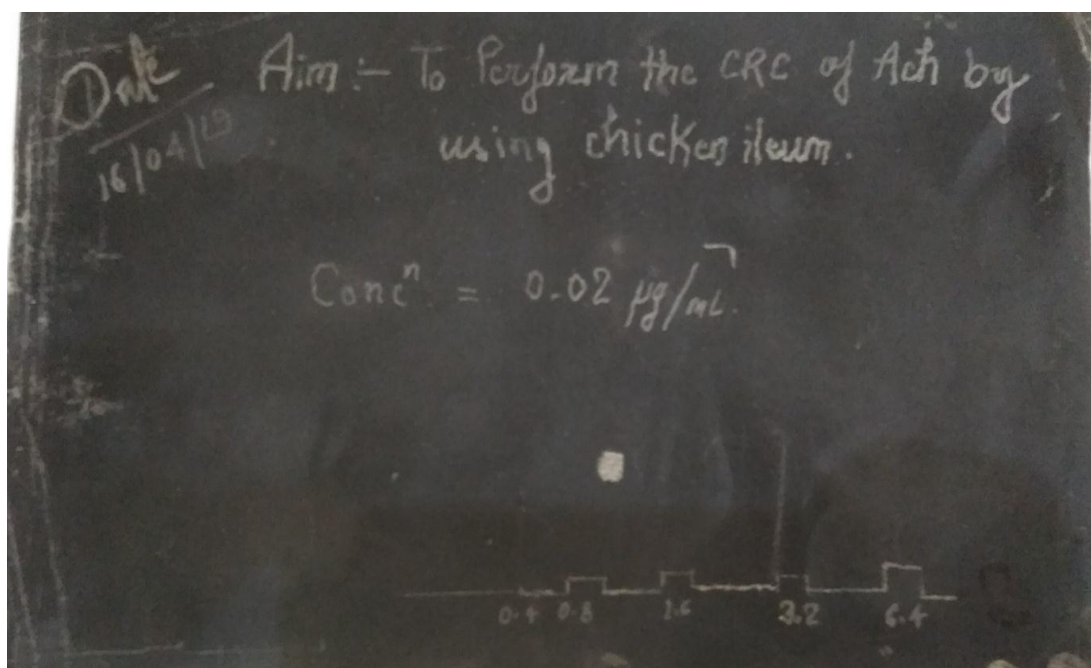 Date
16/04/19
Aim :- To Perform the CRC of Ach by
using chicken ileum.
Concⁿ = 0.02 µg/mL.
0.4 0.8 1.6 3.2 6.4